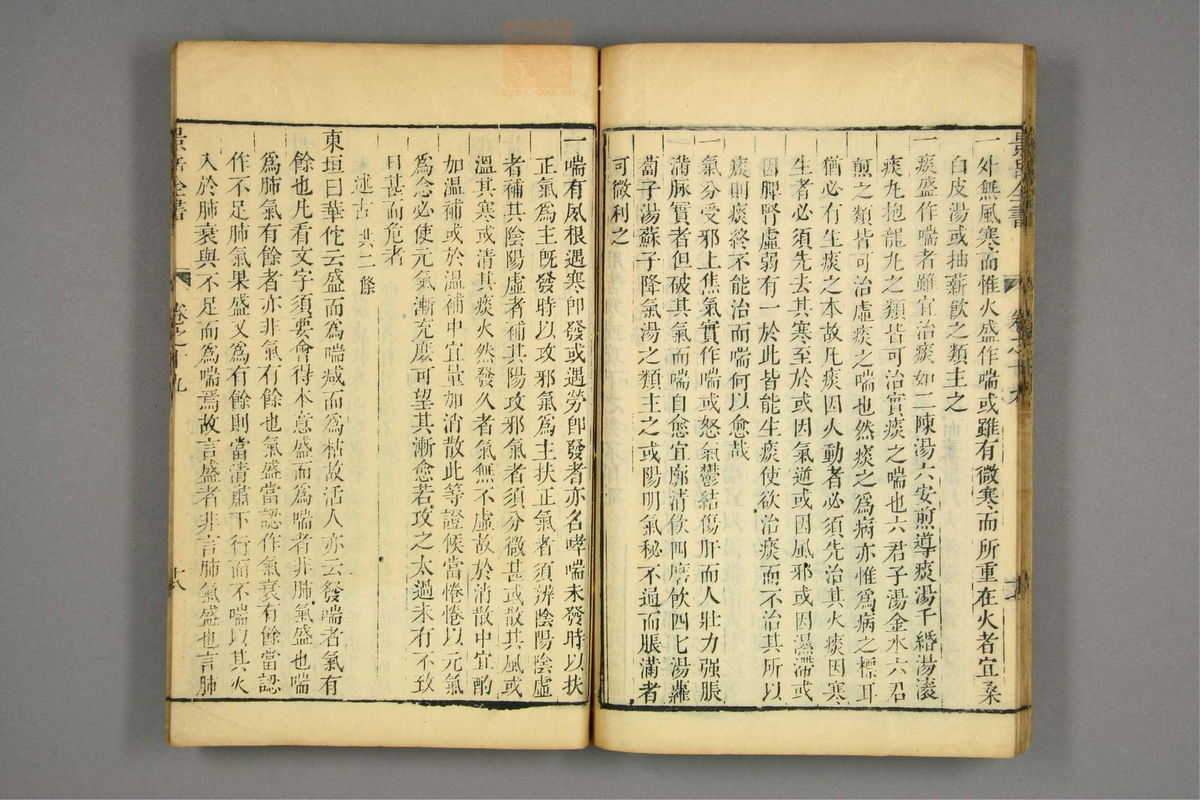 一外無風寒而惟火盛作喘或雖有微寒而所重在火者宜桑
白皮湯或抽薪飲之類主之
一痰盛作喘者雖宜治痰如二陳湯六安煎導痰湯千緡湯滾
痰丸抱龍丸之類皆可治實痰之喘也六君子湯金水六君
煎之類皆可治虛痰之喘也然痰之為病亦惟為病之標耳
猶必有生痰之本故凡痰因火動者必須先治其火痰因寒
生者必須先去其寒至於或因氣逆或因風邪或因濕滯或
因脾腎虛弱有一於此皆能生痰使欲治痰而不治其所以
痰則痰終不能治而喘何以愈哉
一氣分受邪上焦氣實作喘或怒氣鬱結傷肝而人壯力强脹
滿脉實者但破其氣而喘自愈宜廓清飲四磨飲四七湯蘿
蔔子湯蘇子降氣湯之類主之或陽明氣秘不通而脹滿者
可微利之
一喘有夙根遇寒卽發或遇勞卽發者亦名哮喘未發時以扶
正氣爲主旣發時以攻邪氣爲主扶正氣者須辨陰陽陰虛
者補其陰陽虛者補其陽攻邪氣者須分微甚或散其風或
溫其寒或清其痰火然發久者氣無不虛故於消散中宜酌
加溫補或於溫補中宜量加消散此等證候當惓惓以元氣
爲念必使元氣漸充庶可望其漸愈若攻之太過未有不致
日甚而危者
述古 共二條
東垣曰華佗云盛而爲喘减而爲枯故活人亦云發喘者氣有
餘也凡看文字須要會得本意盛而爲喘者非肺氣盛也喘
爲肺氣有餘者亦非氣有餘也氣盛當認作氣衰有餘當認
作不足肺氣果盛又爲有餘則當清肅下行而不喘以其火
入於肺衰與不足而爲喘焉故言盛者非言肺氣盛也言肺
景岳全書
卷之十九
十八